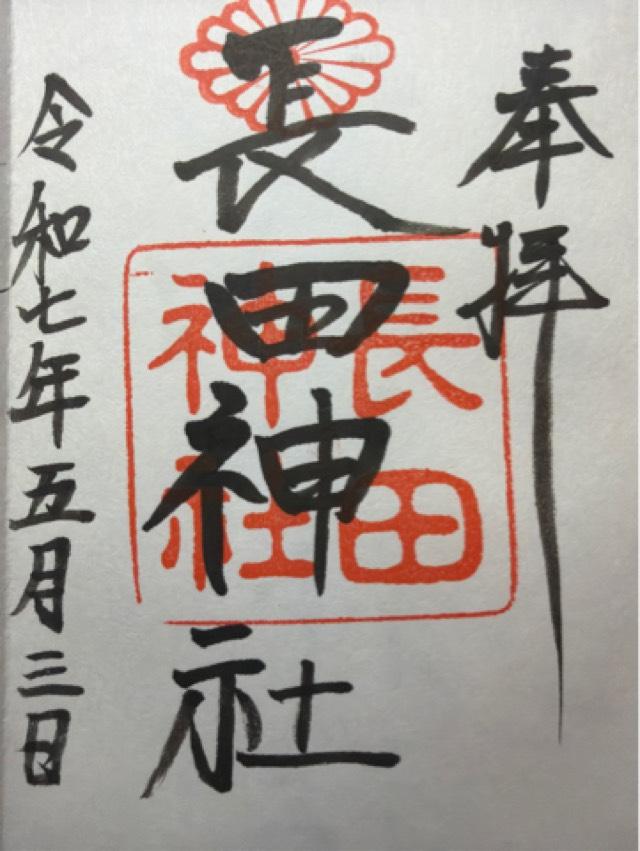 奉拝
長田神社
長田
神社
令和七年五月三日